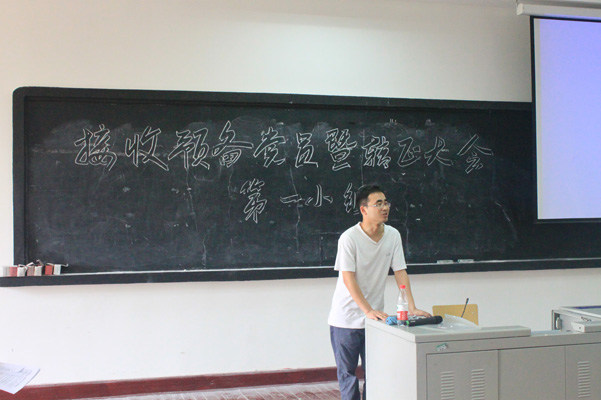 接收预备党员暨转正大会
第一小组